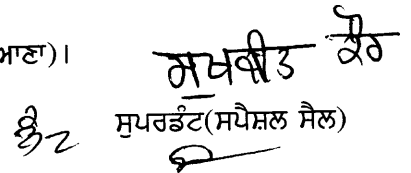 ਮਾਣਾ)।
ਸੁਖਬੀਤ ਕੌਰ
ਸੁਪਰਡੰਟ(ਸਪੈਸ਼ਲ ਸੈਲ)